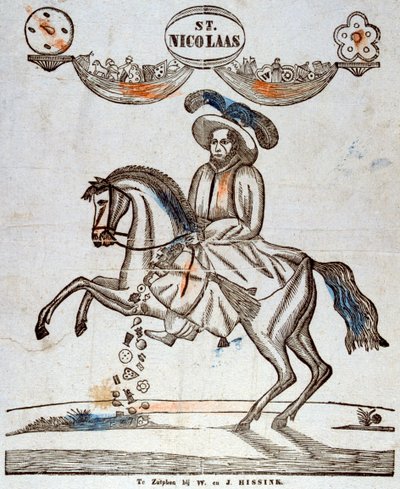 ST.
NICOLAAS.
Te Zutphen bij W. en J. HISSINK.